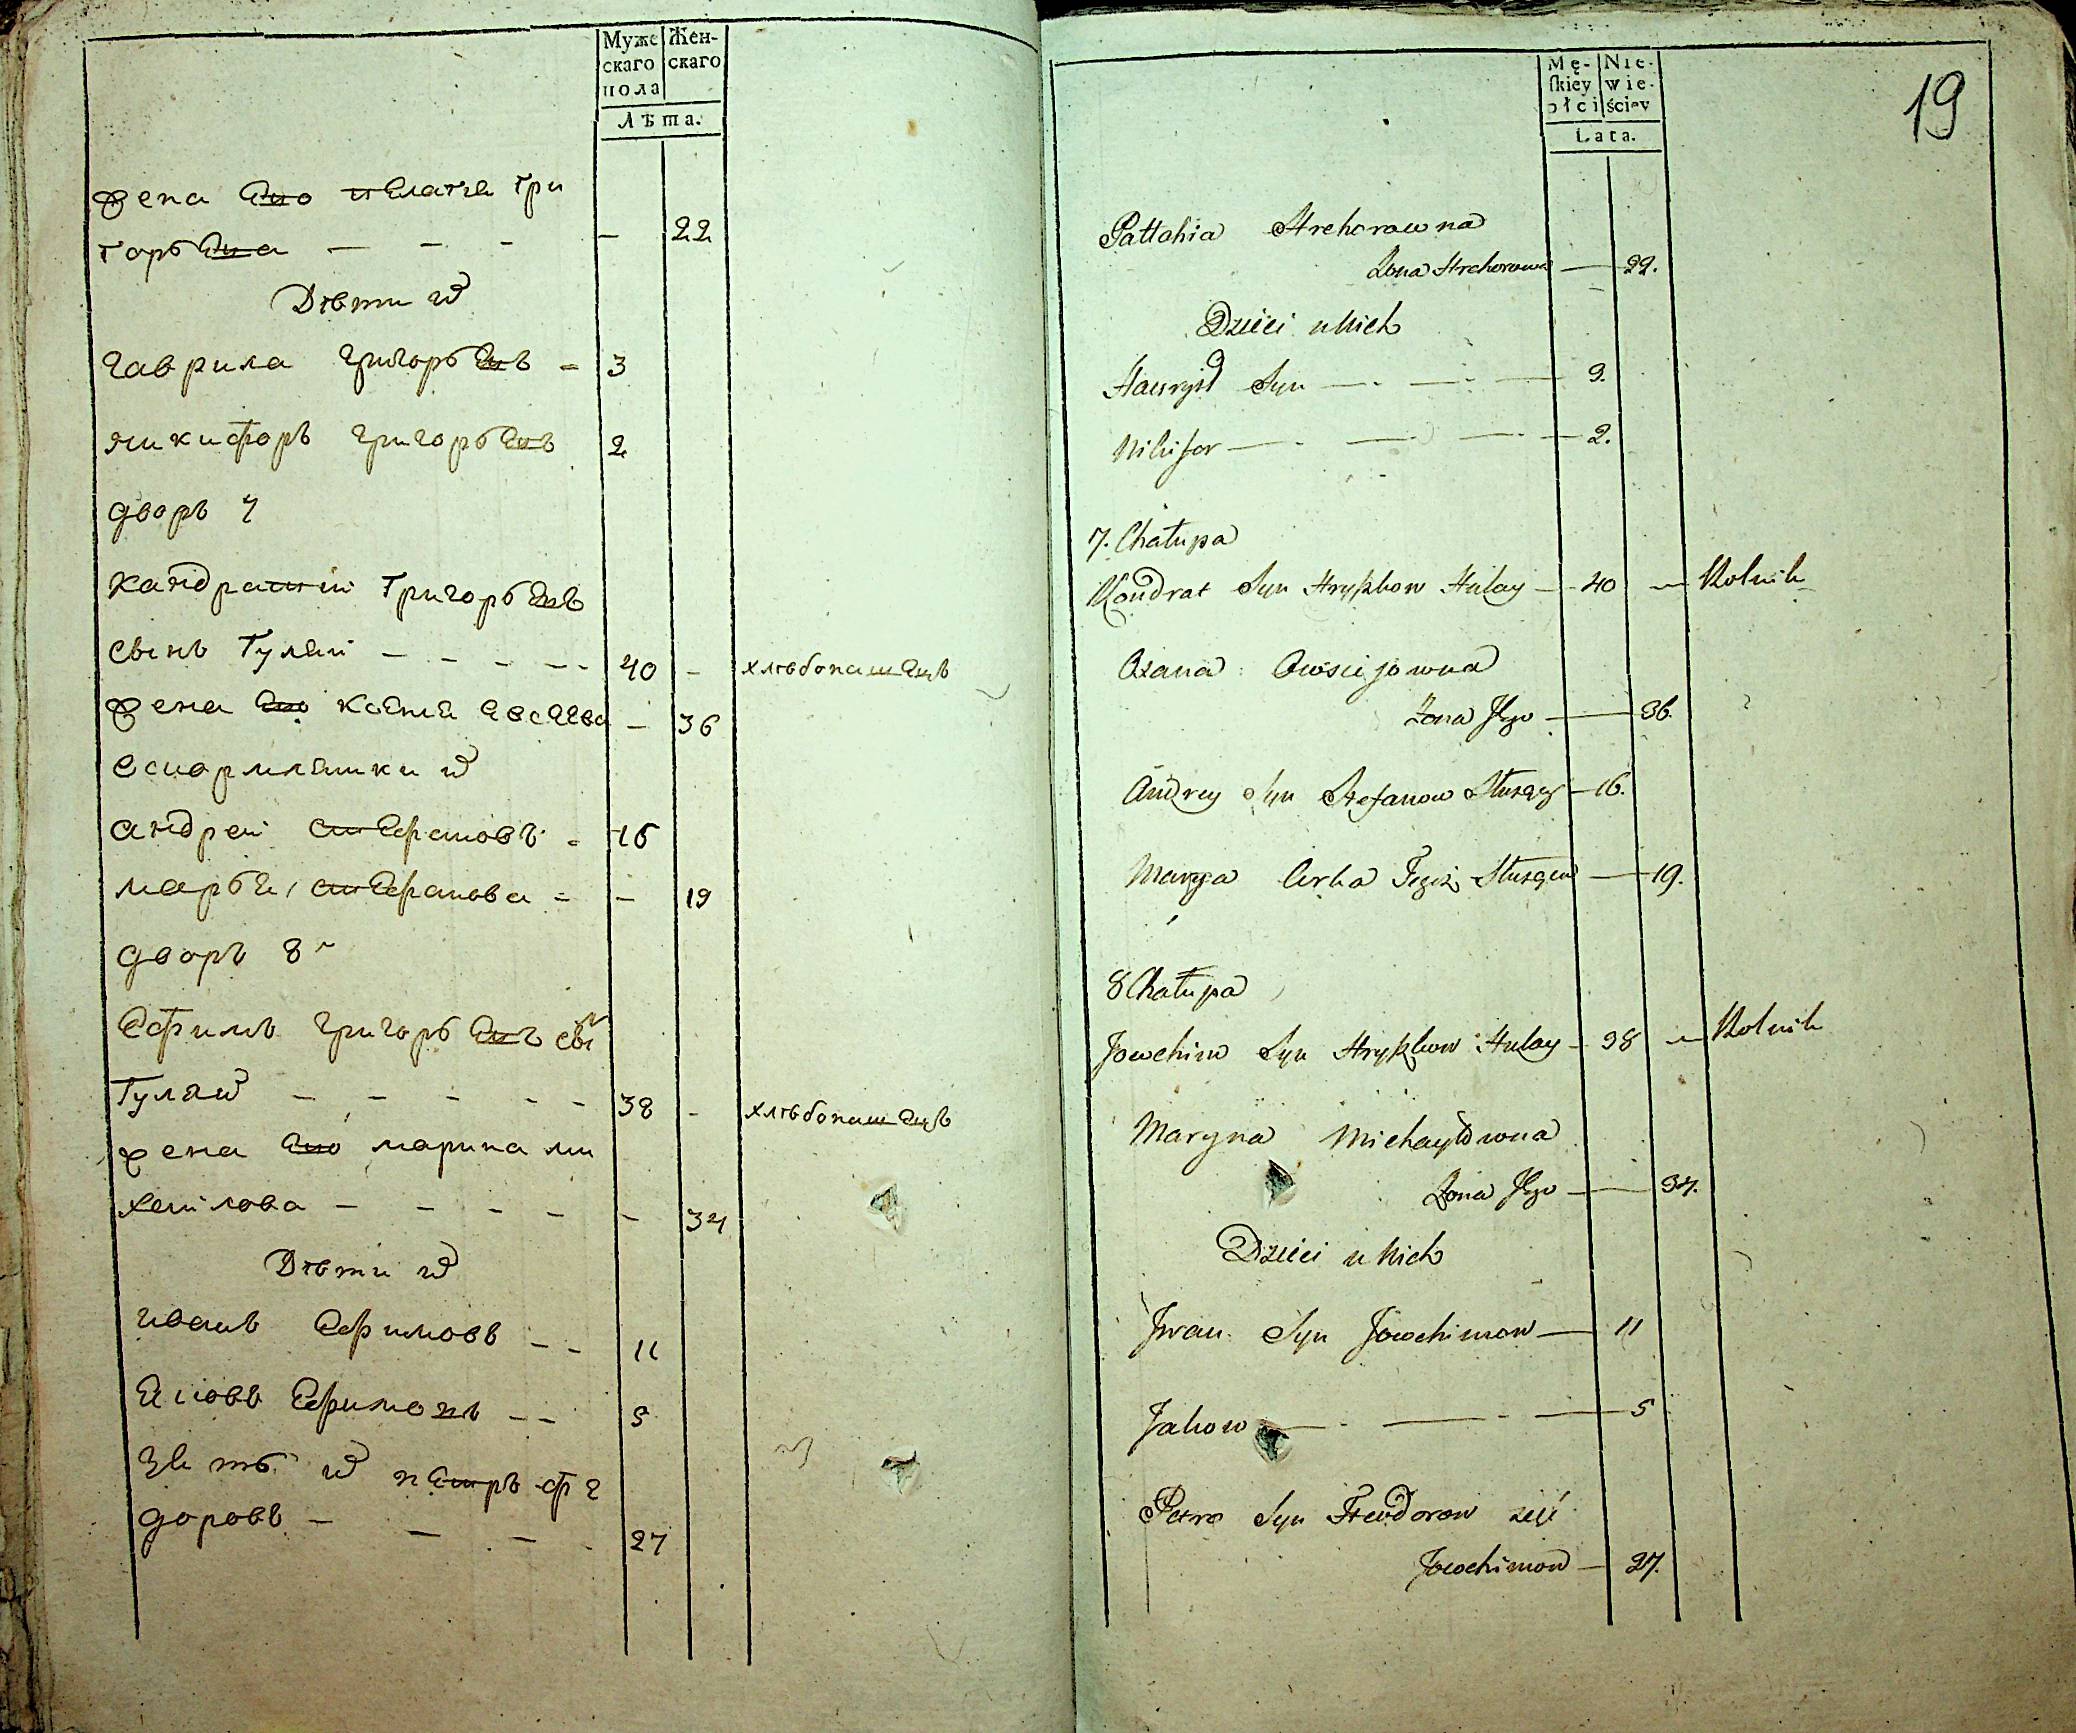 Муже
скаго
пола
Жен-
скаго
Лѣта.
жена его пелагея гри
горьева — - - - 22
Дѣти их
гаврила григорьевъ - 3
никифоръ григорьевъ 2
дворъ 7
кандратей григорьевъ
сынъ гуляй - - - - - 40 - хлѣбопашецъ
жена его евсеева - 36
андрей стефановъ - 16
марья стефанова - - 19
дворъ 8
ефимъ григорьевъ сы
гуляй - - - - - 38 - хлѣбопашецъ
жена его марина ми
хайлова - - - - - 34
Дѣти их
иванъ ефимовъ - - 11
яковъ ефимовъ - - 5
зять их петръ фе
доровъ - - - 27
19
Mę-
skiey
płci
Nie-
wie-
ściey
Lata.
Pałłahia Hrehorowna
Żona Hrehorowa — 22.
Dzieci u Nich
Hawryło Syn — 3.
Nikifor — 2.
7. Chałupa
Kondrat Syn Hryhkow Hulay — 40 — Rolnik
Owsiejowna
Żona Jego — 36.
Andrey Syn Stefanow — 16.
Marya Corka Tegoż — 19.
8 Chałupa
Jowchim Syn Hryhkow Hulay — 38 — Rolnik
Maryna Michayłowna
Żona Jego — 34.
Dzieci u Nich
Jwan Syn Jowchimow — 11
Jakow — 5
Petro Syn Fteodorow zięć
Jowchimow — 27.